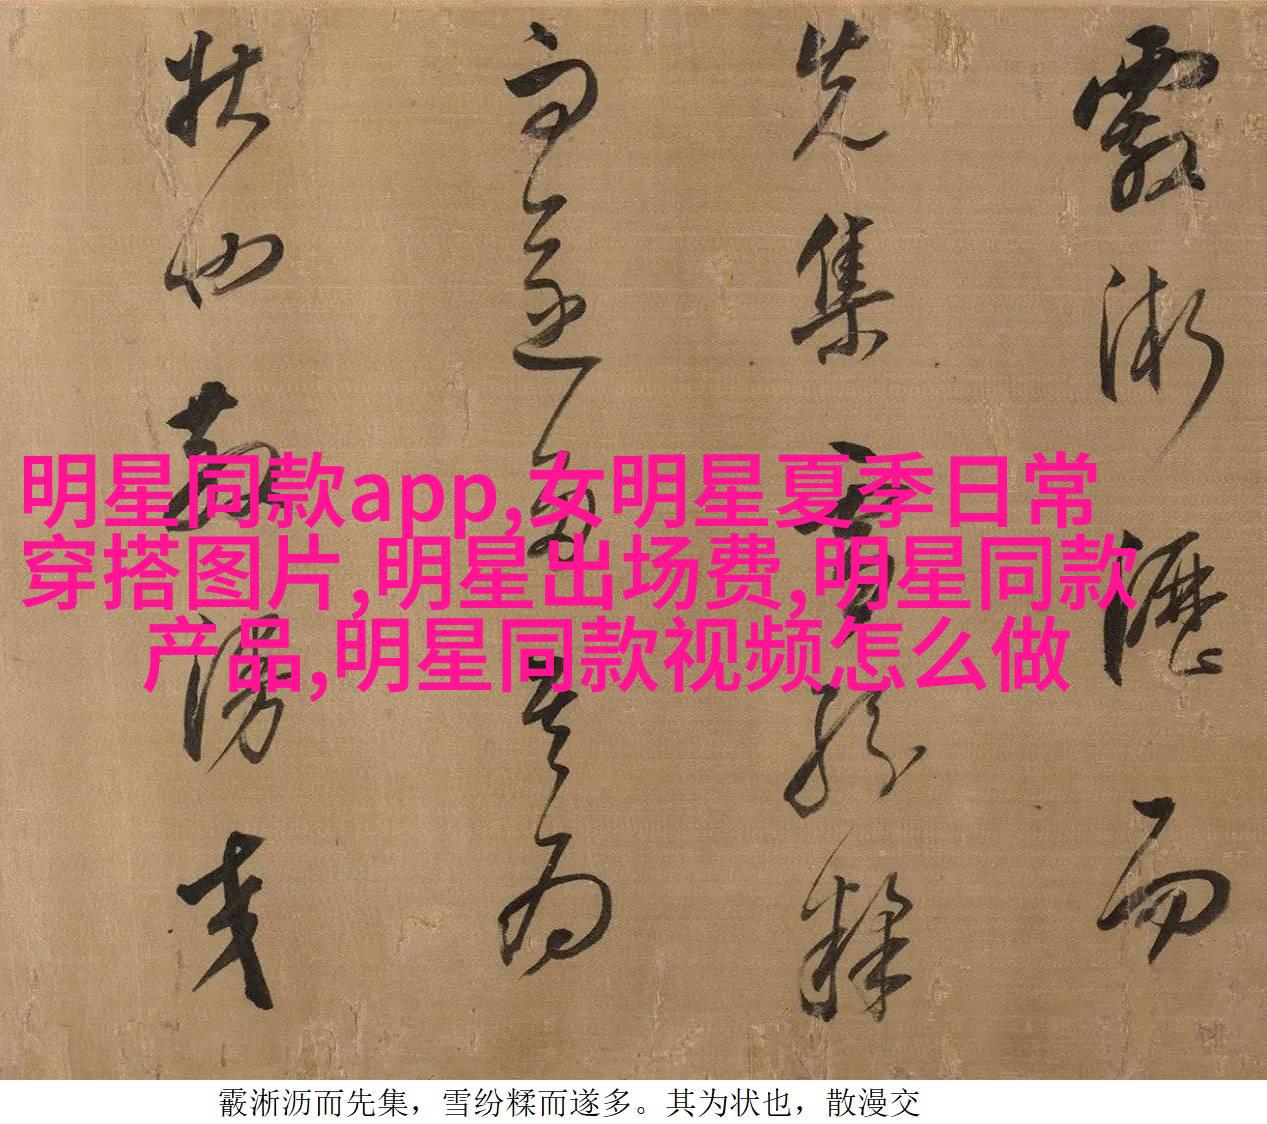 霰淅瀝而
先集雪紛糅
而遂多其為
狀也散漫交
明星同款app,女明星夏季日常
穿搭图片,明星出场费,明星同款
产品,明星同款视频怎么做
霰淅沥而先集，雪纷糅而遂多。其为状也，散漫交